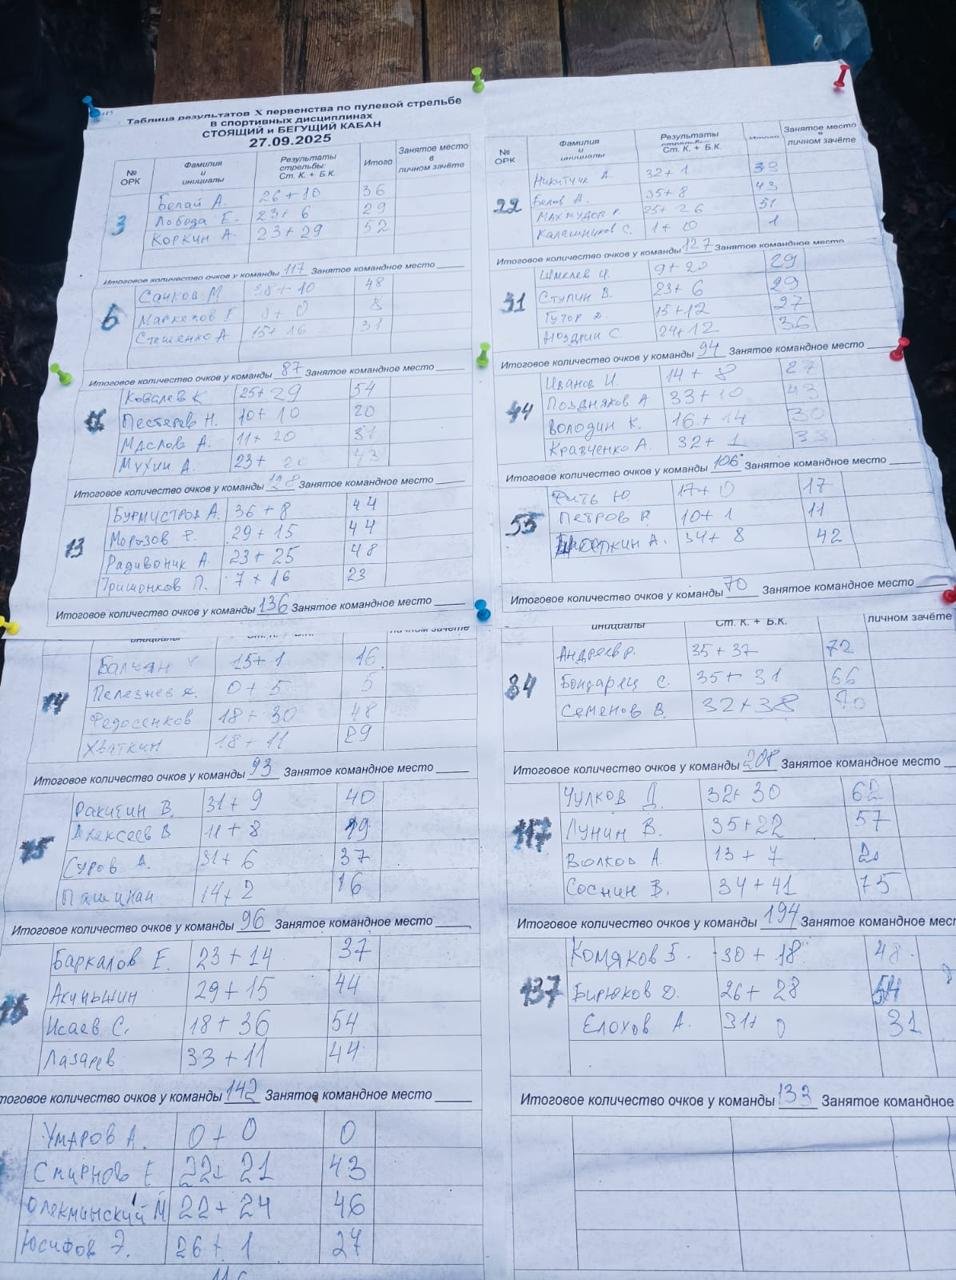 Таблица результатов X первенства по пулевой стрельбе
в спортивных дисциплинах
СТОЯЩИЙ и БЕГУЩИЙ КАБАН
27.09.2025
№ ОРК Фамилия и инициалы Результаты стрельбы: Ст. К. + Б.К. Итого Занятое место в личном зачёте
3
Белай А. 26+10 36
Лобода Е. 23+6 29
Коркин А. 23+29 52
Итоговое количество очков у команды 117 Занятое командное место
6
Сачков М 38+10 48
Маркелов Г 8
Стешенко А 15+16 31
Итоговое количество очков у команды 87 Занятое командное место
Ковалев К 25+29 54
Пестерев Н. 10+10 20
Маслов А. 11+20 31
Мухин А. 23+20 43
Итоговое количество очков у команды 128 Занятое командное место
13
Бурмистров А. 36+8 44
Морозов Р. 29+15 44
Радивоник А. 23+25 48
Тришонков П. 7+16 23
Итоговое количество очков у команды 136 Занятое командное место
инициалы Ст. К. + Б.К. личном зачёте
14
Балчан 15+1 16
Пелезнев А. 0+5 5
Федосенков 18+30 48
Хваткин 18+11 29
Итоговое количество очков у команды 93 Занятое командное место
15
Ракитин В. 31+9 40
Алексеев В 11+8 19
Суров А. 31+6 37
Пашинан 14+2 16
Итоговое количество очков у команды 96 Занятое командное место
16
Баркалов Е. 23+14 37
Акиньшин 29+15 44
Исаев С. 18+36 54
Лазарев 33+11 44
Итоговое количество очков у команды 142 Занятое командное место
Умаров А. 0+0 0
Смирнов Е 22+21 43
Олекминский М 22+24 46
Юсифов Э. 26+1 27
116
№ ОРК Фамилия и инициалы Результаты стрельбы: Ст. К. + Б.К. Итого Занятое место в личном зачёте
22
Никитчук А. 32+1 33
Белов А. 35+8 43
Махмудов Р 25+26 51
Калашников С. 1+0 1
Итоговое количество очков у команды 127 Занятое командное место
31
Шмелев И. 9+20 29
Ступин В. 23+6 29
Тутор Д. 15+12 27
Ноздрин С 24+12 36
Итоговое количество очков у команды 94 Занятое командное место
44
Иванов И. 14+8 22
Поздняков А 33+10 43
Володин К. 16+14 30
Кравченко А. 32+1 33
Итоговое количество очков у команды 106 Занятое командное место
55
Фить Ю 17+0 17
Петров Р. 10+1 11
А. 34+8 42
Итоговое количество очков у команды 70 Занятое командное место
инициалы Ст. К. + Б.К. личном зачёте
84
Андреев Р. 35+37 72
Бондарец С. 35+31 66
Семенов В. 32+38 70
Итоговое количество очков у команды 208 Занятое командное место
117
Чулков Д. 32+30 62
Лунин В. 35+22 57
Волков А. 13+7 20
Соснин В. 34+41 75
Итоговое количество очков у команды 194 Занятое командное мест
137
Комяков Б. 30+18 48
Бирюков Д. 26+28 54
Елохов А. 31+0 31
Итоговое количество очков у команды 133 Занятое командное